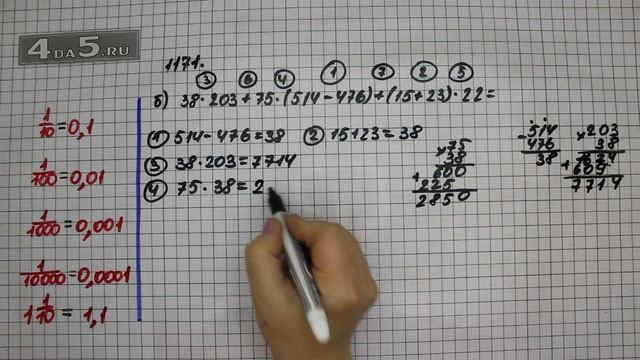 4DA5.RU
1171.
③ ⑥ ④ ① ⑦ ② ⑤
б) 38·203+75·(514-476)+(15+23)·22=
① 514-476=38 ② 15+23=38
③ 38·203=7714
④ 75·38=2
1/10=0,1
1/100=0,01
1/1000=0,001
1/10000=0,0001
1 1/10=1,1
×75
38
600
+225
2850
-514
476
38
×203
38
1624
+609
7714